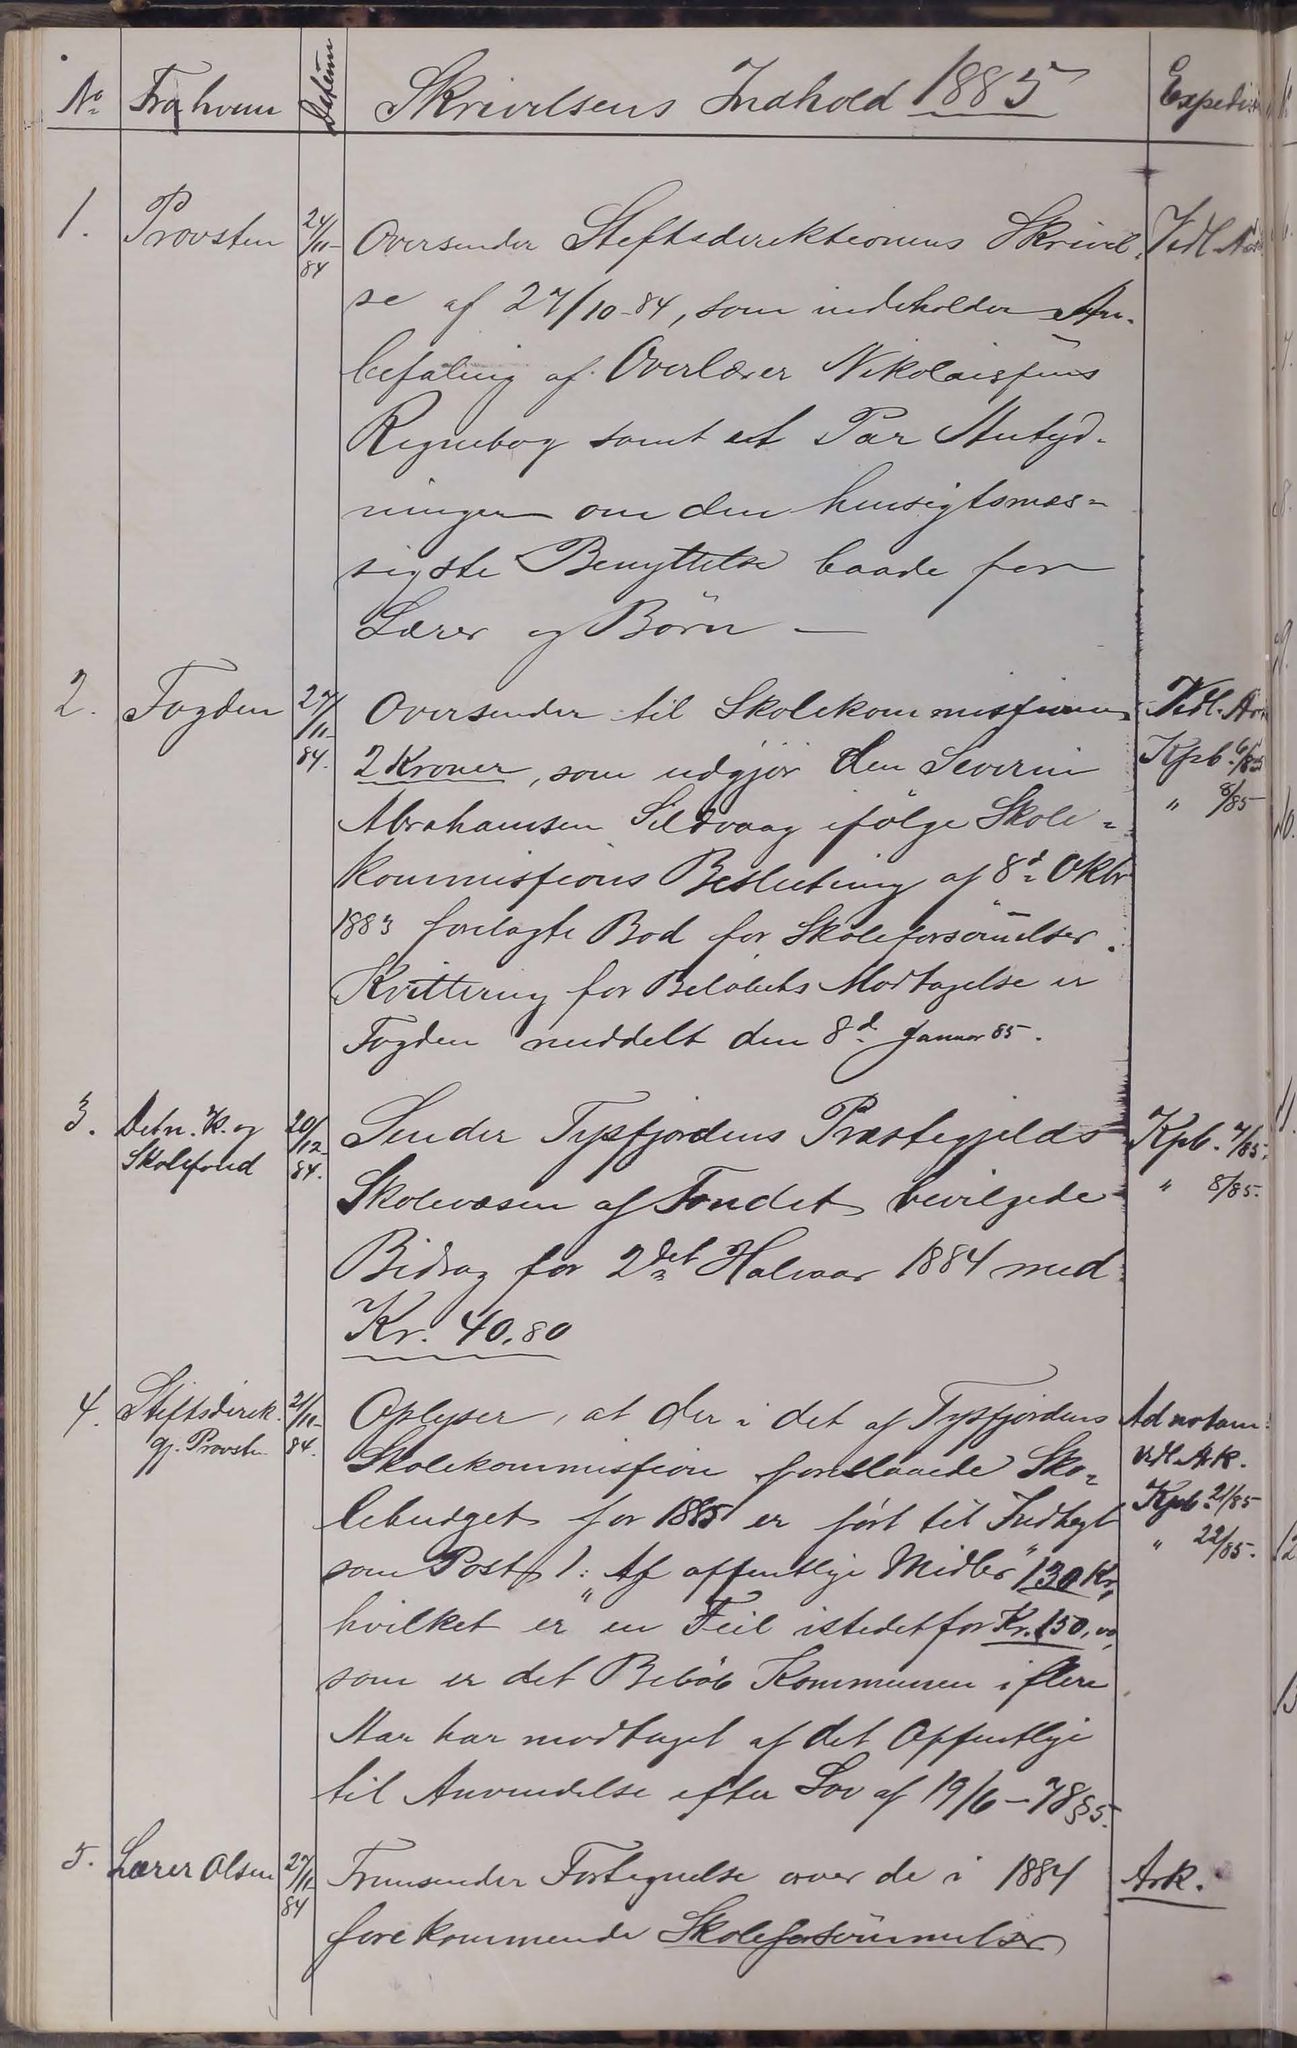 No Fra hvem Datum Skrivelsens Indhold 1885 Expedi
1. Provsten 24/11-84 Oversender Stiftsdirektionens Skrivel- Vedl.
se af 27/10-84, som indeholder An-
befaling af Overlærer Nikolaisens
Regnebog samt et Par Antyd-
ninger om den hensigtsmæs-
sigste Benyttelse baade for
Lærer og Börn -
2. Fogden 27/11-84. Oversender til Skolekommissionen Vedl.
2 Kroner, som udgjör den Severin Kpb. 6/85
Abrahamsen Sildvaag ifölge Skole- " 8/85
kommissions Beslutning af 8d Oktbr
1883 forelagte Bod for Skoleforsömmelser.
Kvittering for Belöbets Modtagelse er
Fogden meddelt den 8d Januar 85.
3. Detn. K. og 20/12-84. Sender Tysfjordens Præstegjelds Kpb. 7/85.
Skolefond Skolevæsen af Fondet bevilgede " 8/85.
Bidrag for 2det Halvaar 1884 med
Kr. 40.80
4. Stiftsdirek. 21/11-84. Oplyser, at der i det af Tysfjordens Ad notam
gj. Provsten Skolekommission foreslaaede Sko- Vedl. Ark.
lebudget for 1885 er fört til Indtægt Kpb. 21/85
som Post 1: "Af offentlige Midler" 130 Kr, " 22/85.
hvilket er en Feil istedetfor Kr. 150,00,
som er det Belöb Kommunen i flere
Aar har modtaget af det Offentlige
til Anvendelse efter Lov af 19/6-78 § 5.
5. Lærer Olsen 27/11-84 Fremsender Fortegnelse over de i 1884 Ark.
forekommende Skoleforsömmelser